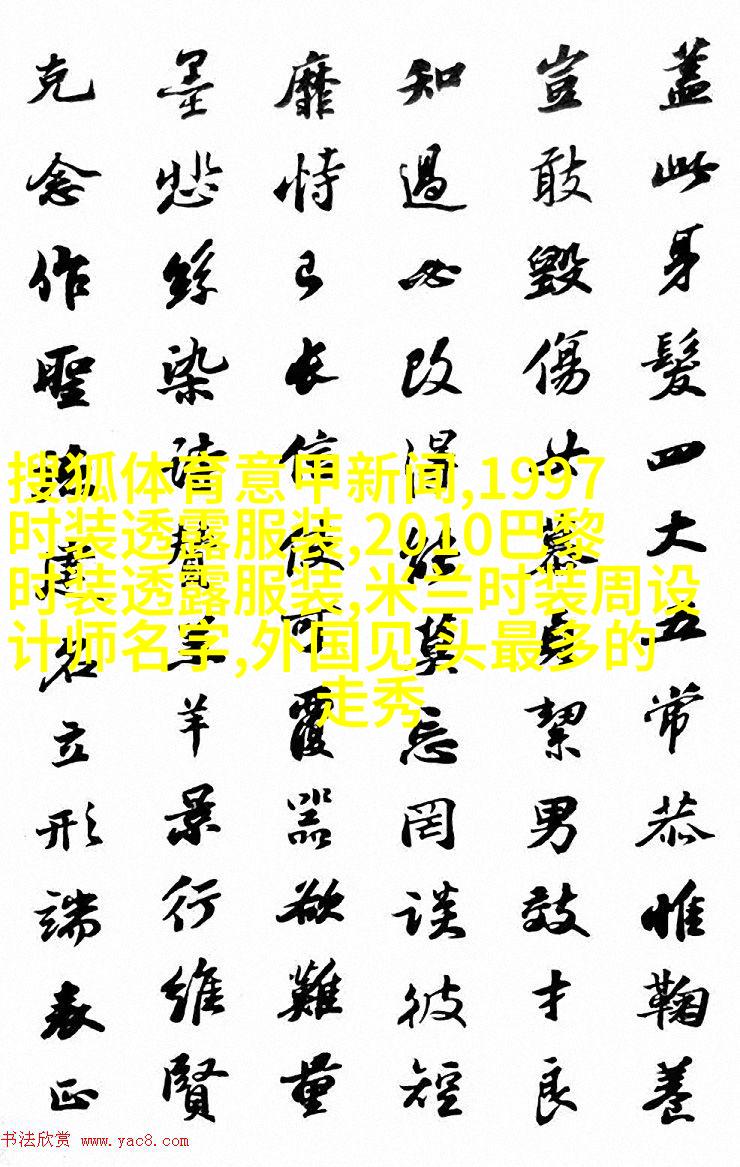 蓋此身髮四大五常恭惟鞠養
豈敢毀傷女慕貞絜男效才良
知過必改得能莫忘罔談彼短
靡恃己長信使可覆器欲難量
墨悲絲染詩讚羔羊景行維賢
克念作聖德建名立形端表正
搜狐体育意甲新闻,1997
时装透露服装,2010巴黎
时装透露服装,米兰时装周设
计师名字,外国见 头最多的
走秀
书法欣赏 www.yac8.com